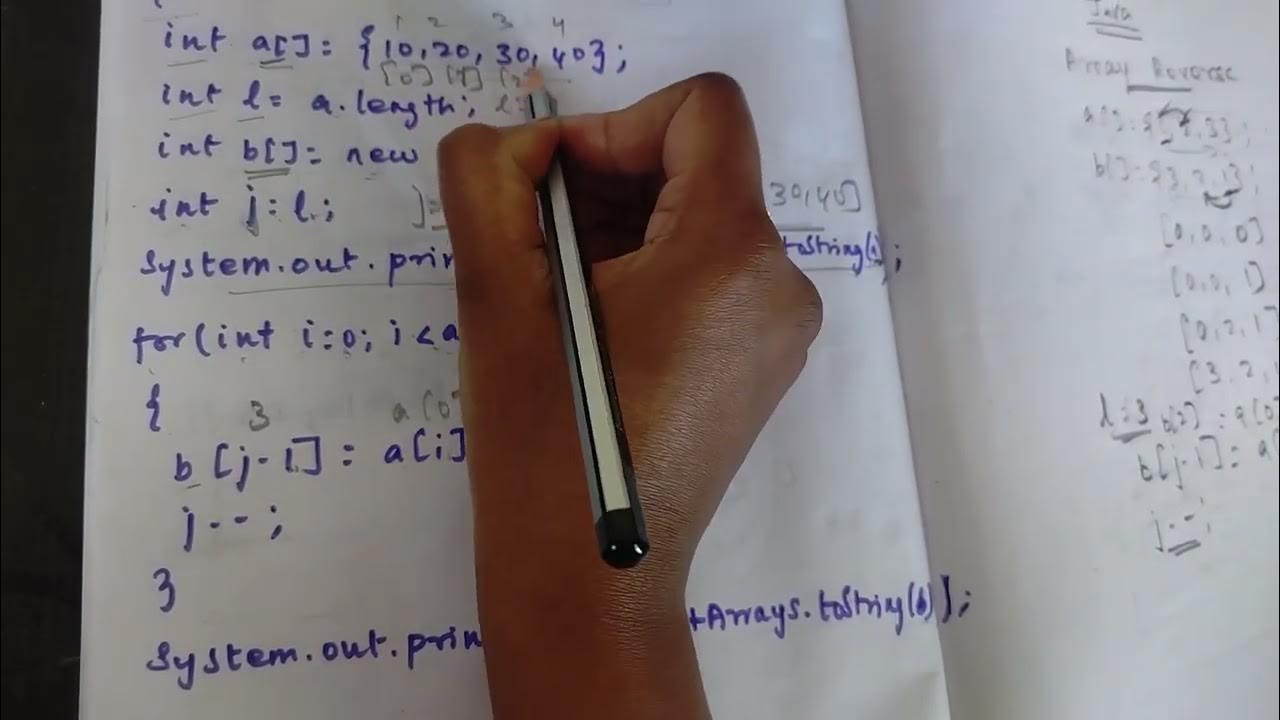 1 2 3 4
int a[]= {10,20,30,40};
[0] [1] [2
int l= a.length; l=
int b[]= new
int j=l; j= 30,40]
System.out.prin toString(a);
for(int i=0; i<a
{ 3 a[0
b[j-1]= a[i]
j--;
}
System.out.prin +Arrays.toString(b));
Java
Array Reverse
b[]={3,2,1};
[0,0,0]
[0,0,1]
[0,2,1
[3,2,
l=3 b[2] = a[0
b[j-1]= a
j--;